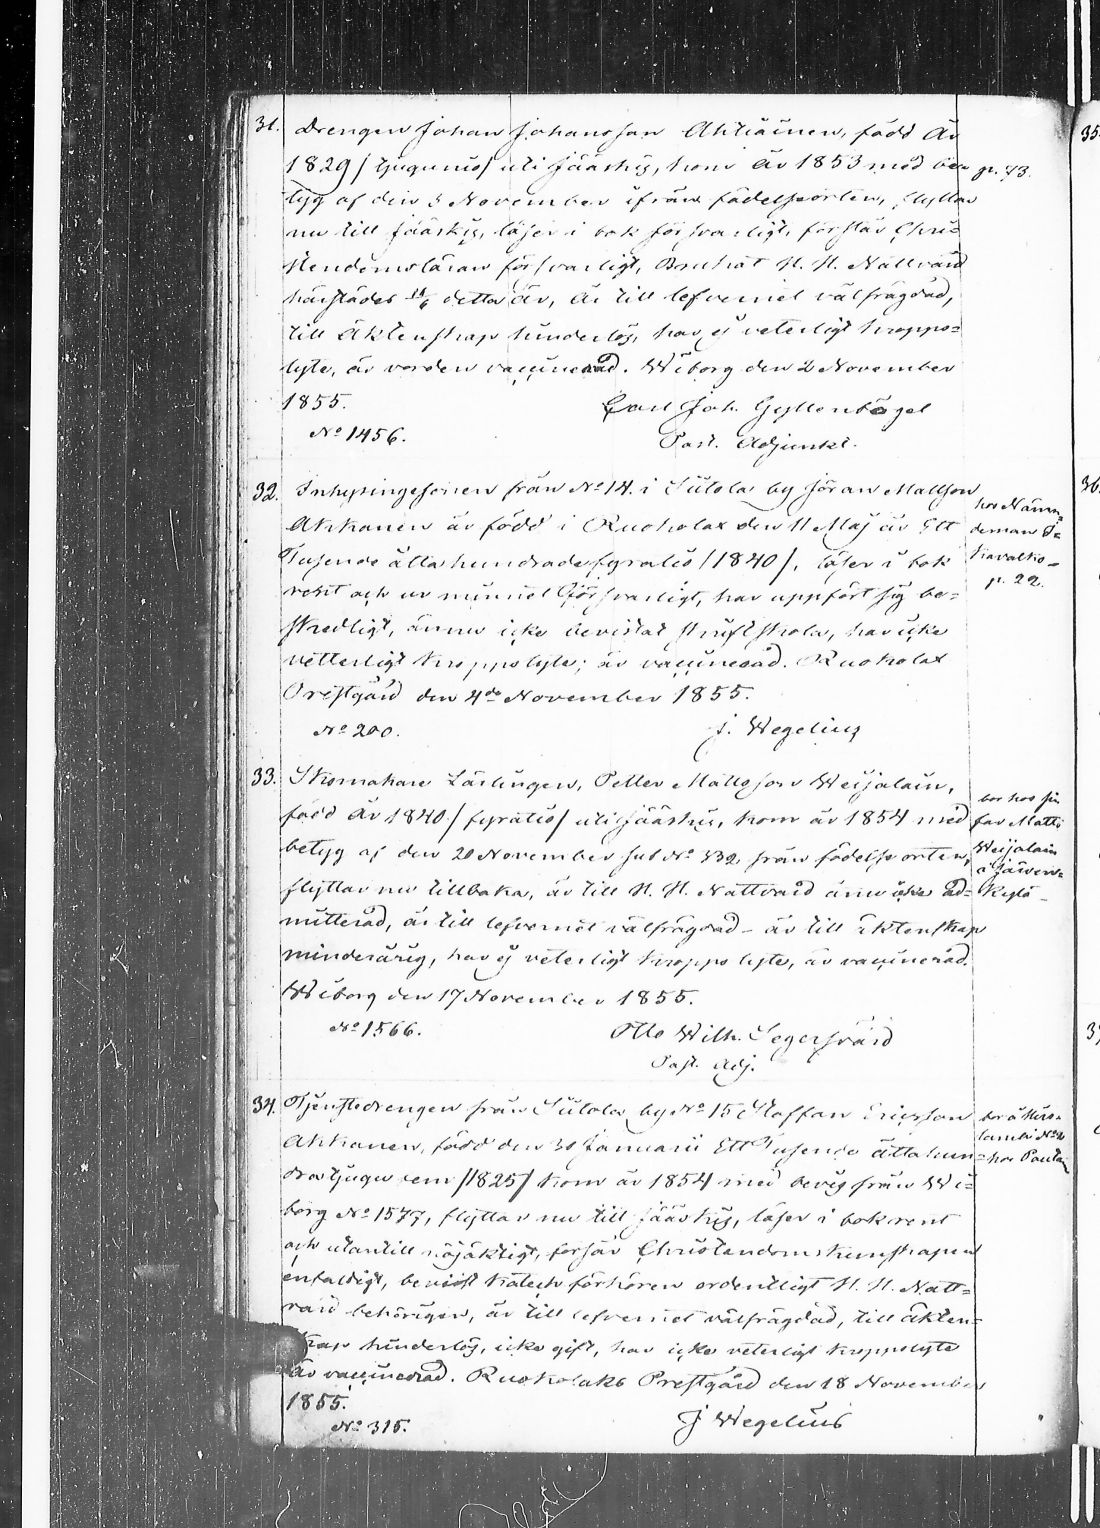 31. Drengen Johan Johansson Ahtiainen, född år
1829 /tjugunio/ uti Jääskis, kom år 1853 med be- p. 73.
tyg af den 5 November ifrån födelseorten, flyttar
nu till Jääskis, läser i bok försvarligt, förstår Chri-
stendomsläran försvarligt, Brukat H. H. Nattvard
härstädes detta år, är till lefvernet välfrägdad,
till äktenskap hinderlös, har ej veterligt kropps-
lyte, är vorden vaccinerad. Wiborg den 2 November
1855. Carl Joh. Gyllenbögel
No 1456. Past. Adjunkt.
32. Inhysingesonen från No 14 i Siitola by Jöran Mattson
Ahkanen är född i Ruokolax den 11 Maj år Ett
Tusende åttahundradefyratio /1840/, läser i bok
rent och ur minnet försvarligt, har uppfört sig be-
skedligt, ännu icke bevistat skriftskola, har icke
vetterligt kroppslyte; är vaccinerad. Ruokolax
Prestgård den 4de November 1855.
No 200. J. Wegelius
hos Näm-
deman
p. 22.
33. Skomakare Lärlingen, Petter Mattsson Weijalain,
född år 1840 /fyratio/ uti Jääskis, kom år 1854 med
betyg af den 20 November sub No 332 från födelse orten,
flyttar nu tillbaka, är till H. H. Nattvard ännu icke ad-
mitterad, är till lefvernet välfrägdad - är till äktenskap
minderårig, har ej veterligt kropps lyte, är vaccinerad.
Wiborg den 17 November 1855.
No 1566. Otto Wilh. Segersvärd
Past. Adj.
bor hos sin
far Matts
Weijalain
i Järven-
kylä
34. Tjenstedrengen från Siitola by No 15 Staffan Ericsson
Ahkanen, född den 30 Januarii Ett Tusende åttahun-
dratjugu fem /1825/ kom år 1854 med bevis från Wi-
borg No 1577, flyttar nu till Jääskis, läser i bok rent
och utantill nöjaktigt, förstår Christendomskunskapen
enfaldigt, bevistat katech förhören ordentligt H. H. Natt-
vard behörigen, är till lefvernet välfrägdad, till äkten-
skap hinderlös, icke gift, har icke veterligt kroppslyte
är vaccinerad. Ruokolaks Prestgård den 18 November
1855.
No 315. J Wegelius
bor i
lambi No 2
hos